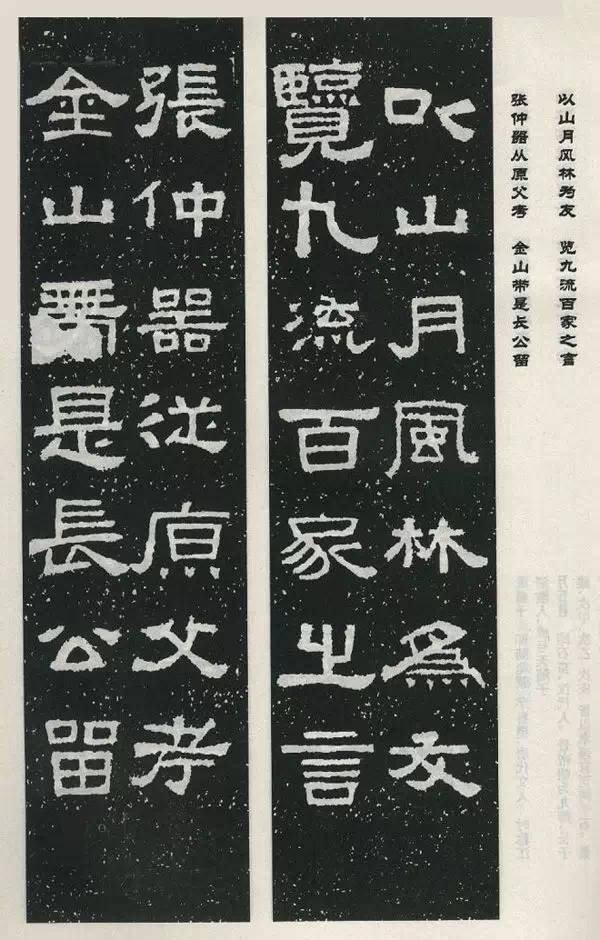 以山月风林为友　览九流百家之言
张仲器从原父考　金山带是长公留
㠯山月風林為友
覽九流百家之言
張仲器從原父考
金山帶是長公留